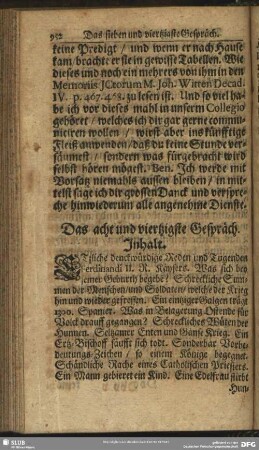 952 Das sieben und viertzigste Gespräch.
keine Predigt / und wenn er nach Hause
kam / brachte er sie in gewisse Tabellen. Wie
dieses und noch ein mehrers von ihm in den
Memoriis JCtorum M. Joh. Witten Decad.
IV. p. 467. 468. zu lesen ist. Und so viel habe
ich vor dieses mahl in unserm Collegio
gehöret / welches ich dir gar gerne communi-
ciren wollen / wirst aber ins künfftige
Fleiß anwenden / daß du keine Stunde ver-
säumest / sondern was fürgebracht wird
selbst hören mögest. Ben. Ich werde mit
Vorsatz niemahls aussen bleiben / in mit-
telst sage ich dir grossen Danck und verspre-
che hinwiederum alle angenehme Dienste.
Das acht und viertzigste Gespräch.
Inhalt.
ETtliche denckwürdige Reden und Tugenden
Ferdinandi II. R. Käysers. Was sich bey
einer Geburth begabe? Schreckliche Sum-
men der Menschen und Soldaten / welche der Krieg
hin und wieder gefressen. Ein eintziger Galgen trägt
1500. Spanier. Was in Belagerung Ostende für
Volck drauff gegangen? Schreckliches Wüten der
Hunnen. Seltzamer Enten und Gänse Krieg. Ein
Ertz-Bischoff saufft sich todt. Sonderbar Vorbe-
deutungs-Zeichen / so einem Könige begegnet.
Schändliche Rache eines Catholischen Priesters.
Ein Mann gebieret ein Kind. Eine Edelfrau stirbt
Hun-
SLUB